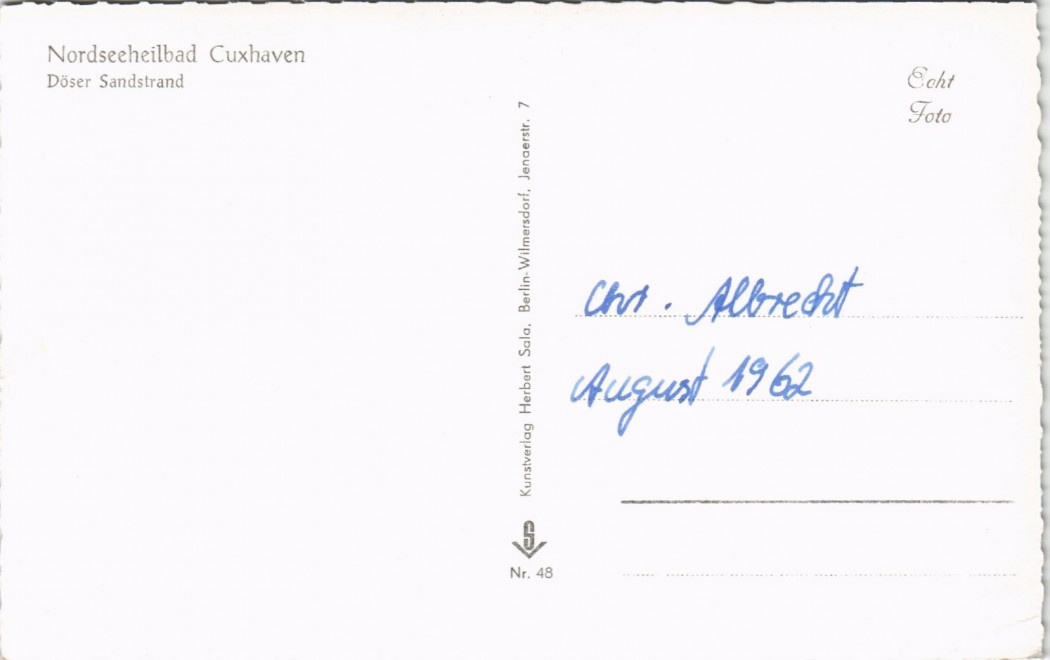 Nordseeheilbad Cuxhaven
Döser Sandstrand
Echt
Foto
Kunstverlag Herbert Sala, Berlin-Wilmersdorf, Jenaerstr. 7
S
Nr. 48
Chr. Albrecht
August 1962